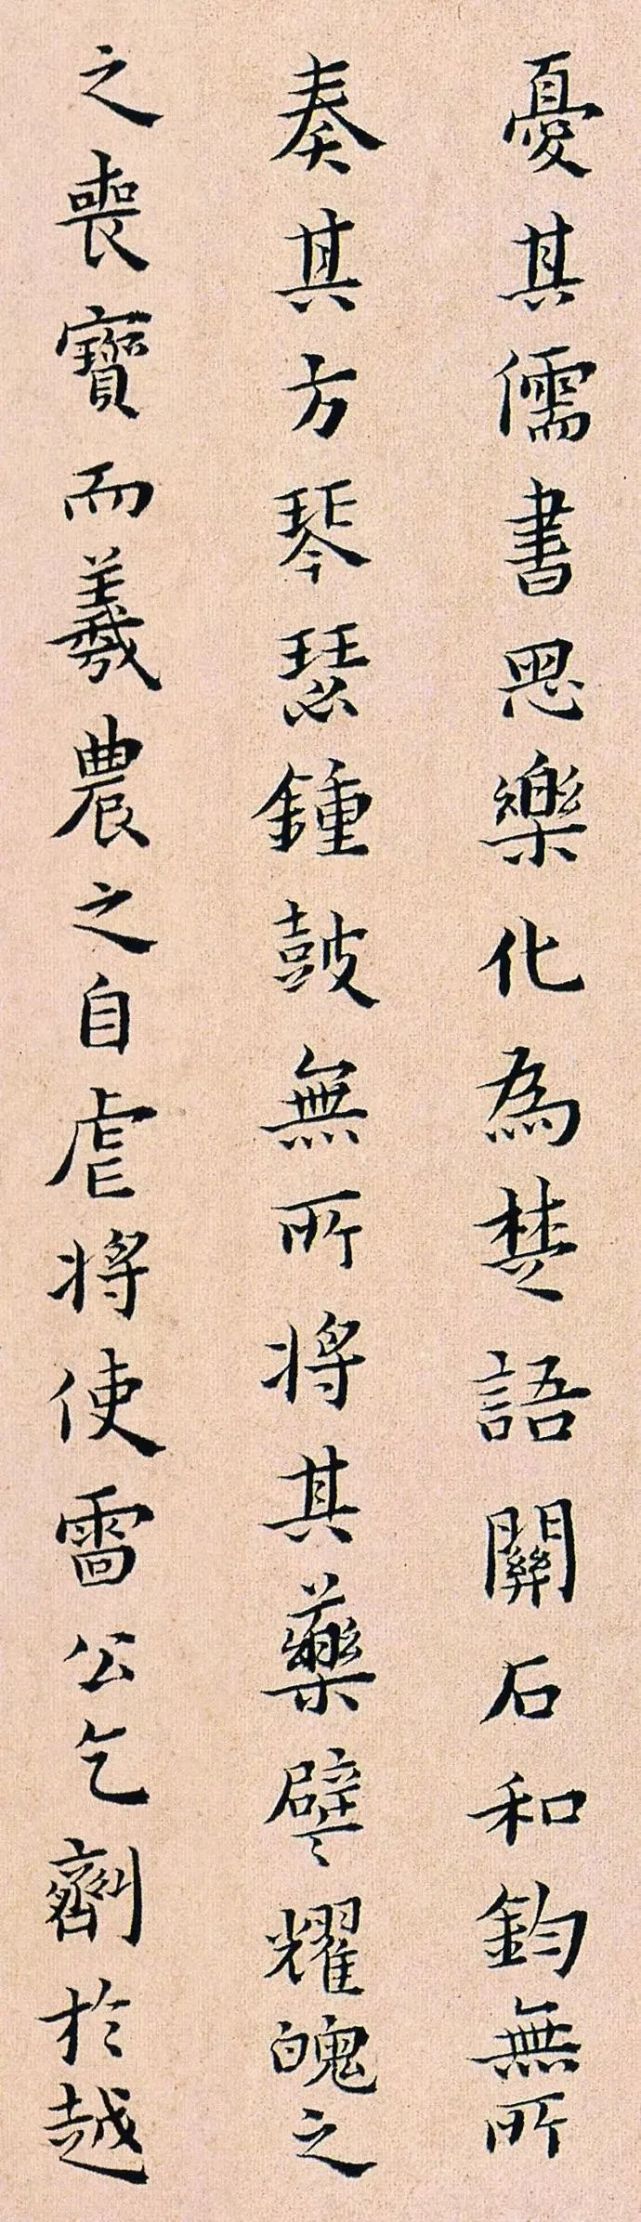 憂其儒書思樂化為楚語關石和鈞無所
奏其方琴瑟鍾鼓無所將其藥譬耀魄之
之喪寶而羲農之自虐將使雷公乞劑於越